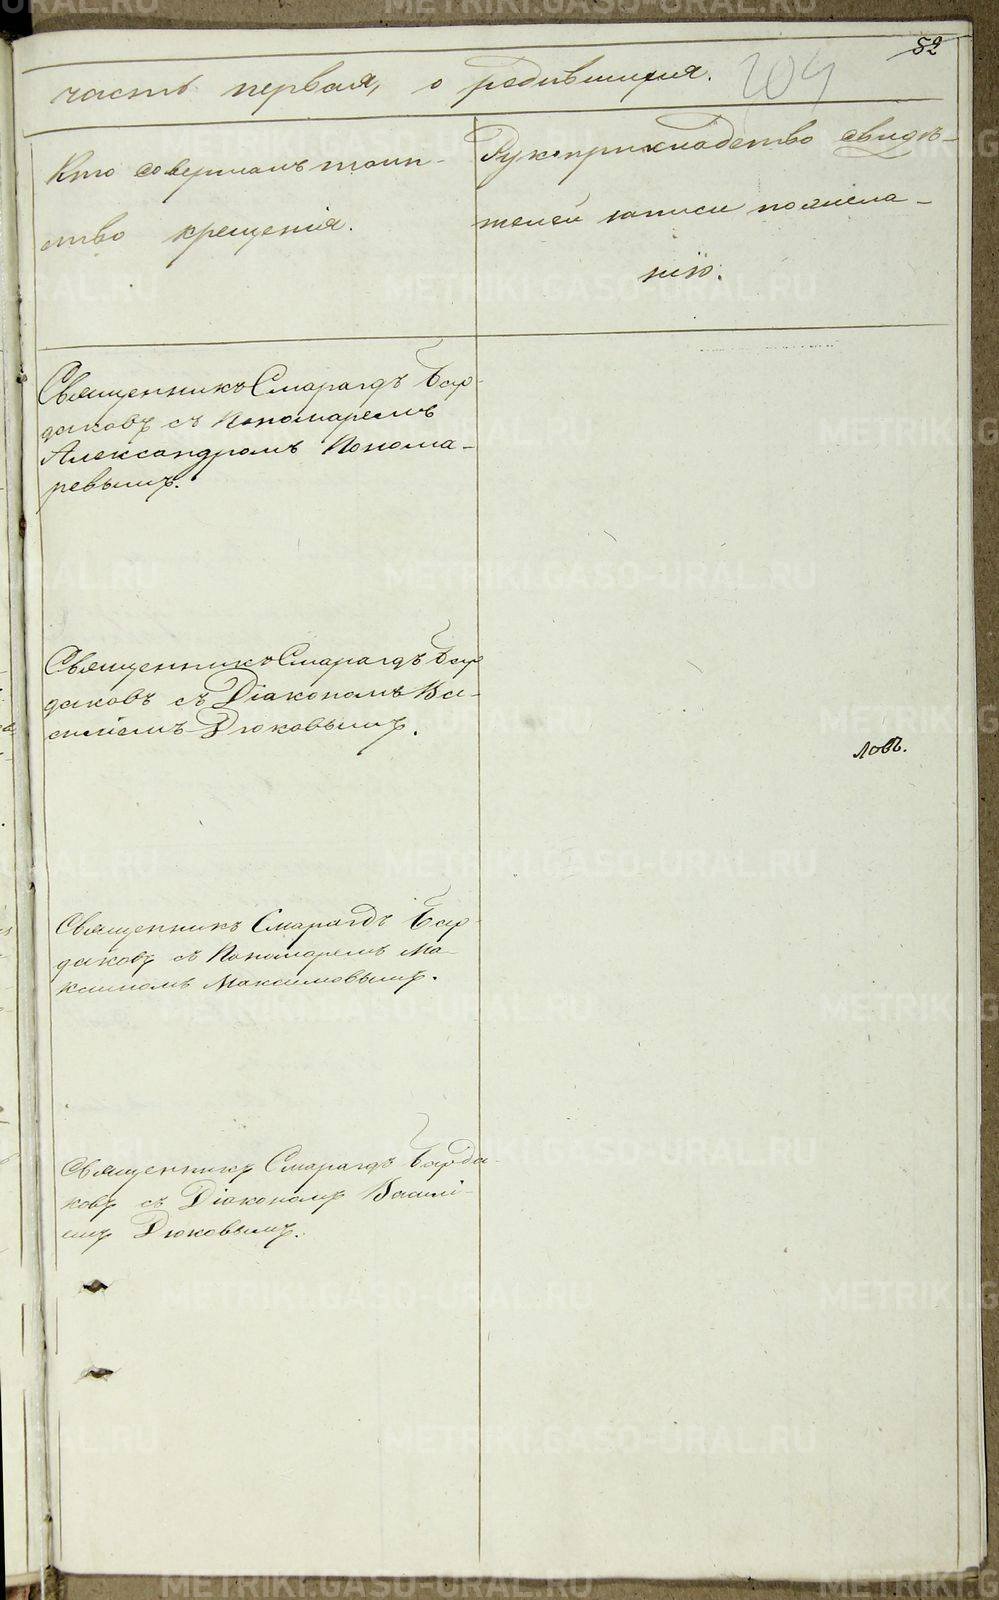 82
часть первая, о родившихся. 204
Кто совершалъ таин-
ство крещенія.
Рукоприкладство свидѣ-
телей записи по желa-
нію.
Священникъ Смарагдъ Бар-
даковъ съ Пономаремъ
Александромъ Понома-
ревымъ.
Священникъ Смарагдъ Бар
даковъ съ Діакономъ Ва-
силіемъ Дюковымъ.
ловъ.
Священникъ Смарагдъ Бар-
даковъ съ Пономаремъ Ма
ксимомъ Максимовымъ.
Священникъ Смарагдъ Барда-
ковъ съ Діакономъ Василі-
емъ Дюковымъ.
METRIKI.GASO-URAL.RU